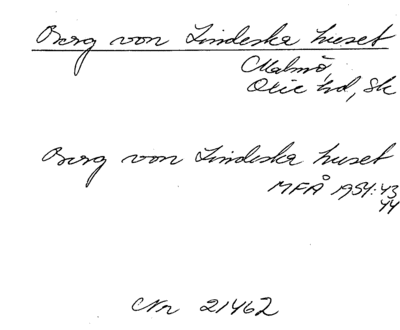 Berg von Lindeska huset
Malmö,
Oxie hd, Sk
Berg von Lindeska huset
MFÅ 1954:43
44
Nr 21462